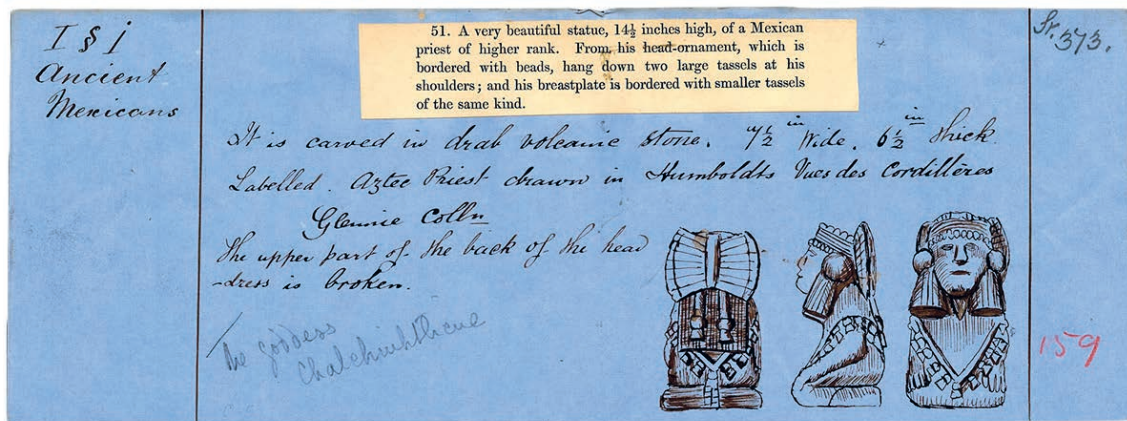 I § i
Ancient
Mexicans
51. A very beautiful statue, 14½ inches high, of a Mexican
priest of higher rank. From his head-ornament, which is
bordered with beads, hang down two large tassels at his
shoulders; and his breastplate is bordered with smaller tassels
of the same kind.
It is carved in drab volcanic stone. 7½ in Wide. 6½ in thick
Labelled. Aztec Priest drawn in Humboldts Vues des Cordillères
Glennie Colln
The upper part of the back of the head
-dress is broken.
The goddess
Chalchiuhtlicue
373.
159